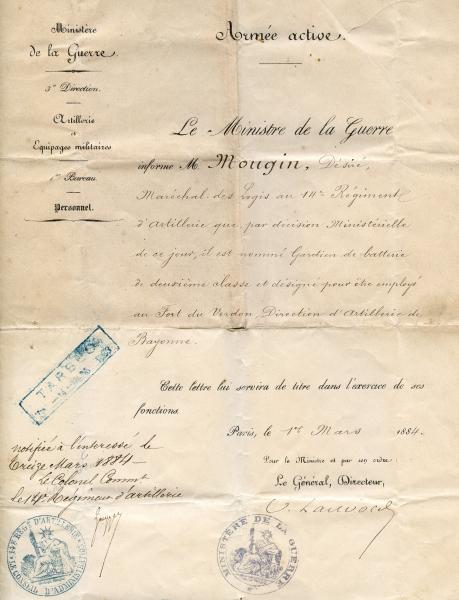 Ministère
de la Guerre.
3e Direction.
Artillerie
et
Equipages militaires
1er Bureau.
Personnel.
Armée active.
Le Ministre de la Guerre
informe M. Mougin, Désiré,
Maréchal des Logis au 14me Régiment
d'Artillerie que, par décision Ministérielle
de ce jour, il est nommé Gardien de batterie
de deuxième classe et désigné pour être employé
au Fort du Verdon, Direction d'Artillerie de
Bayonne.
Cette lettre lui servira de titre dans l'exercice de ses
fonctions.
Paris, le 1er Mars 1884.
Pour le Ministre et par son ordre:
Le Général, Directeur,
TARBES
notifiée à l'intéressé le
treize Mars 1884
le Colonel Commt
le 14e Régiment d'artillerie
14e RÉGT D'ARTILLERIE
CONSEIL D'ADMINISTRATION
MINISTÈRE DE LA GUERRE